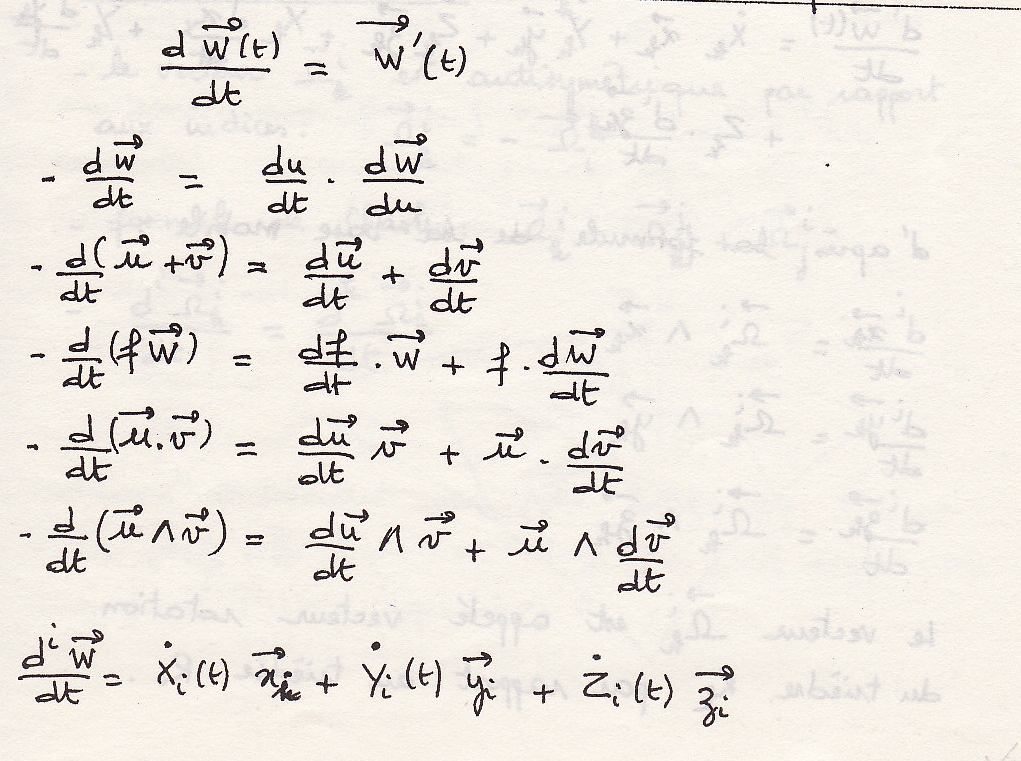 d𝑤⃗(t)/dt = 𝑤⃗'(t)
- d𝑤⃗/dt = du/dt . d𝑤⃗/du
- d/dt(𝑢⃗ + 𝑣⃗) = d𝑢⃗/dt + d𝑣⃗/dt
- d/dt(f 𝑤⃗) = df/dt . 𝑤⃗ + f . d𝑤⃗/dt
- d/dt(𝑢⃗ . 𝑣⃗) = d𝑢⃗/dt 𝑣⃗ + 𝑢⃗ . d𝑣⃗/dt
- d/dt(𝑢⃗ ∧ 𝑣⃗) = d𝑢⃗/dt ∧ 𝑣⃗ + 𝑢⃗ ∧ d𝑣⃗/dt
dⁱ𝑤⃗/dt = Ẋᵢ(t) 𝑥⃗ᵢ + Ẏᵢ(t) 𝑦⃗ᵢ + Żᵢ(t) 𝑧⃗ᵢ